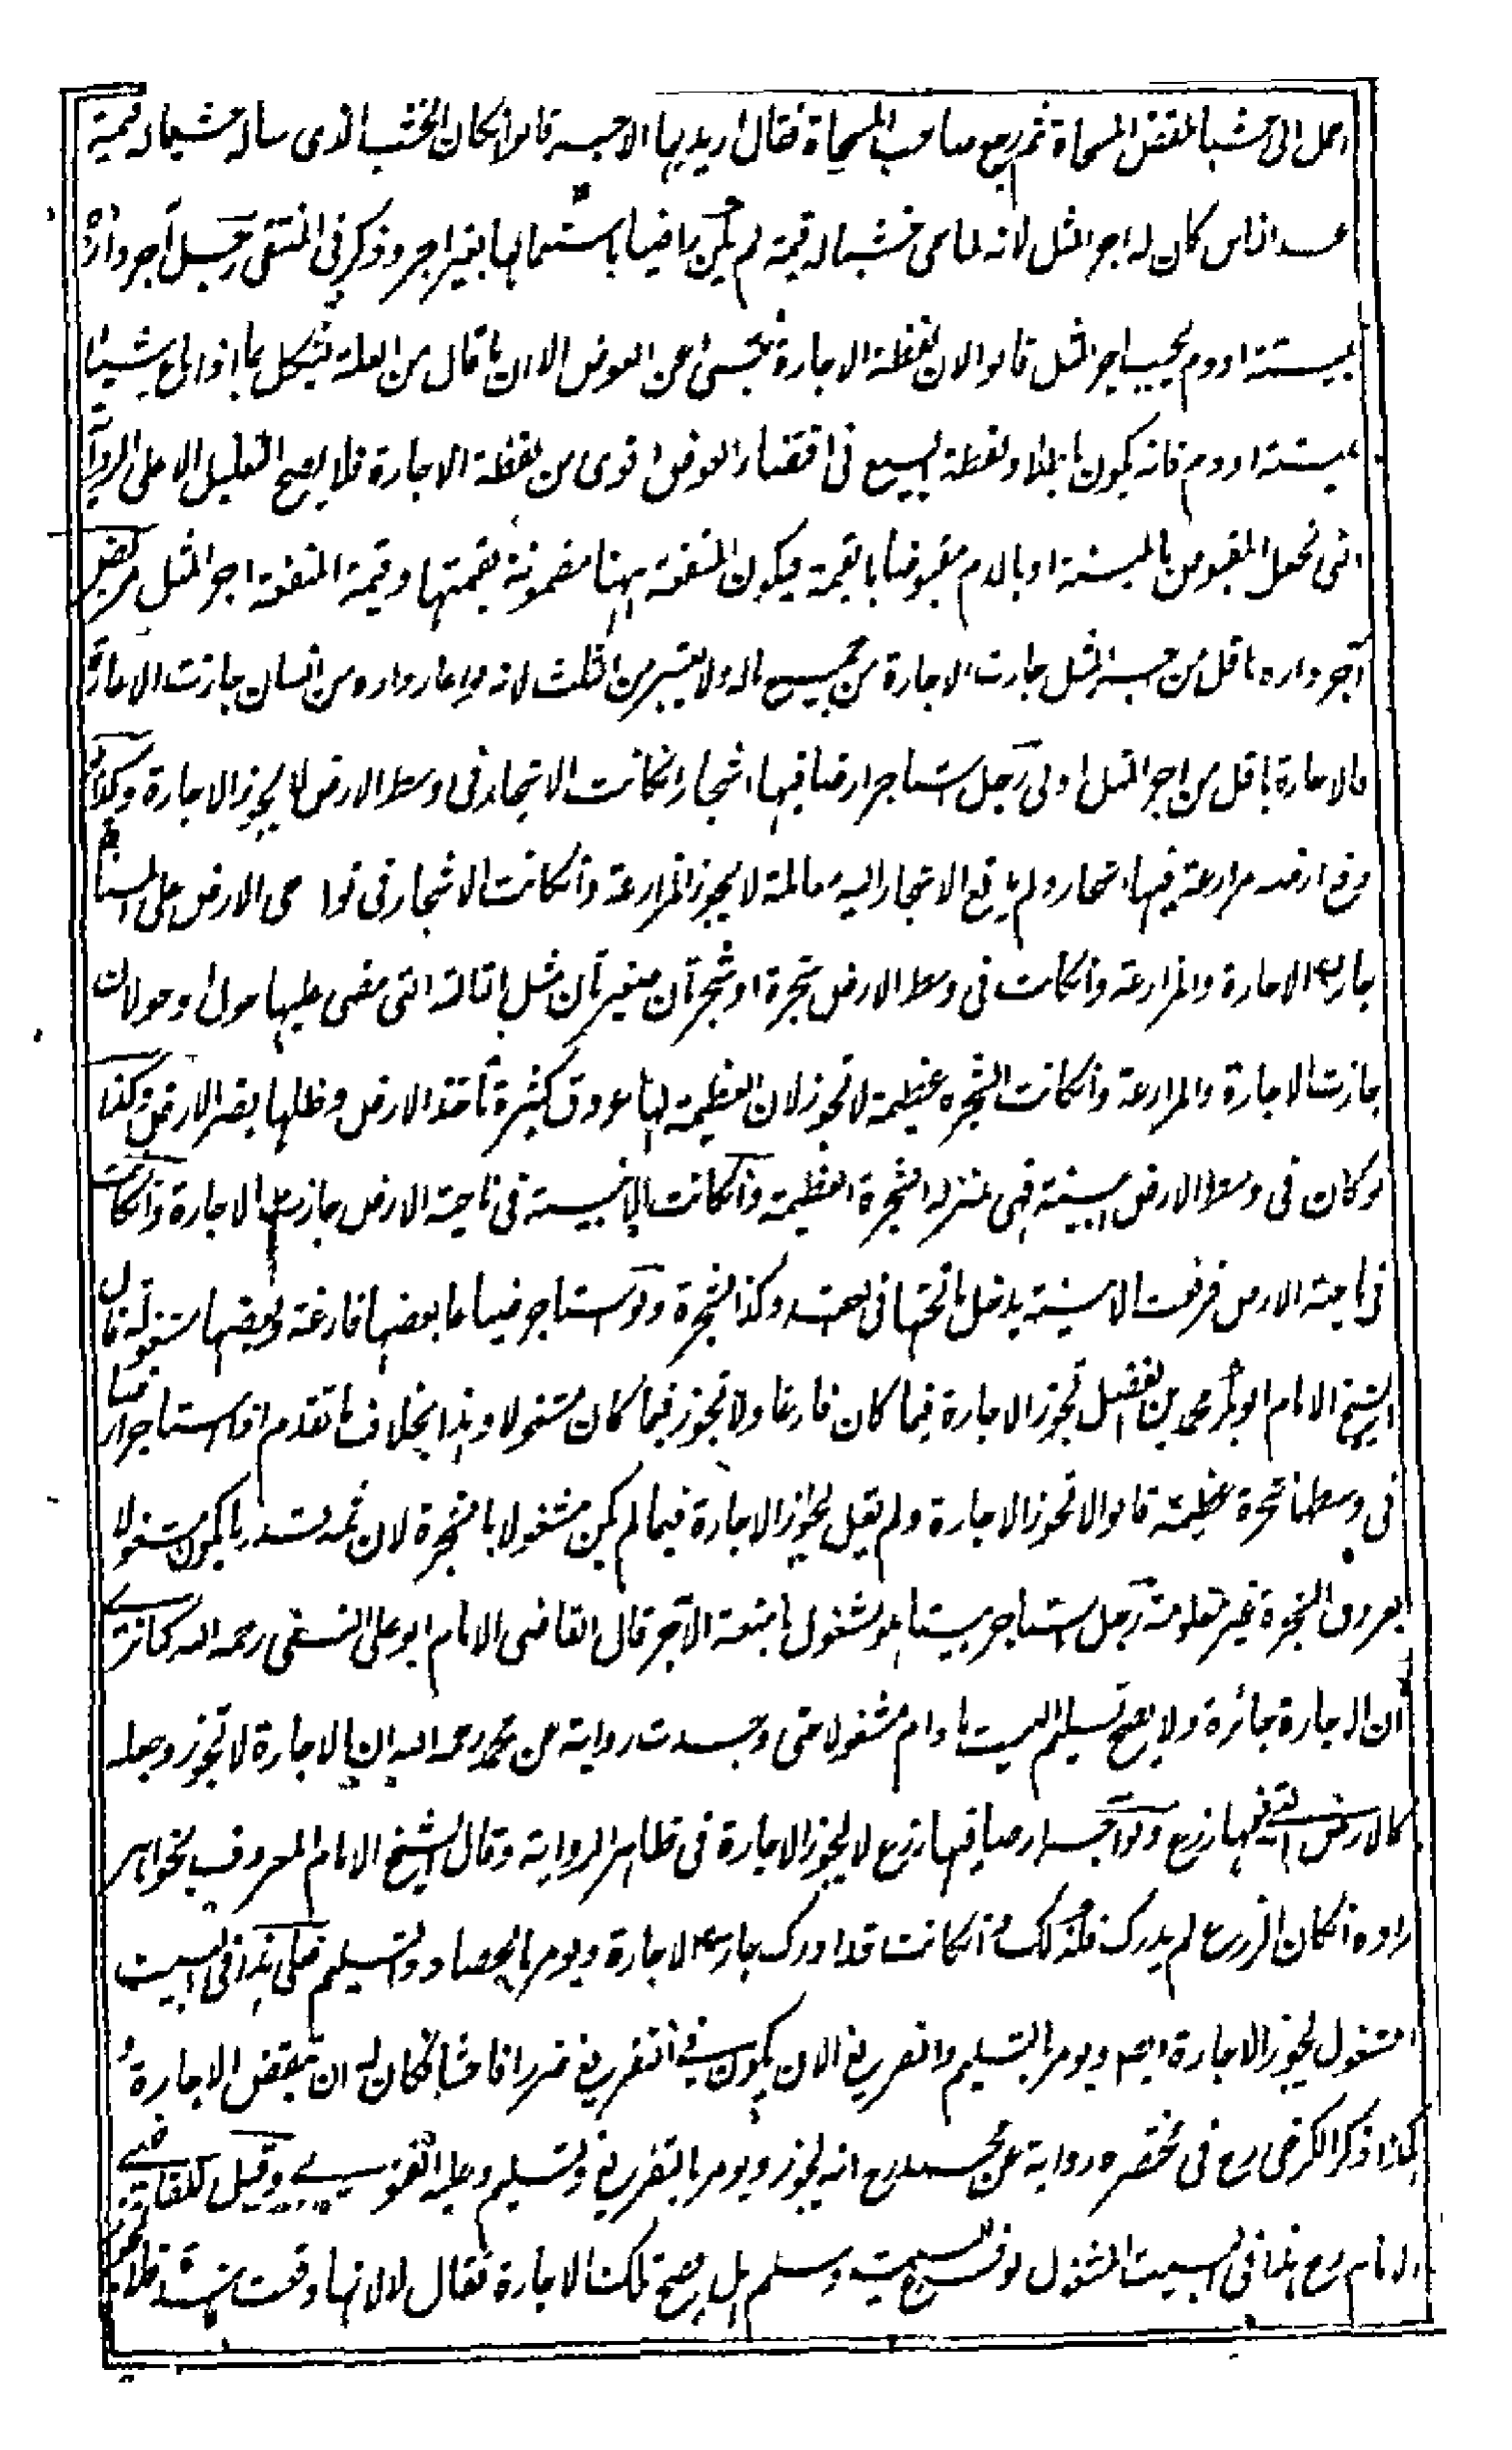 احمل الى خشبا لمقبض المسحاة ثم رجع صاحب المسحاة فقال اريد بها الاجر قالوا انكان الخشب الذى ساله شيئا له قيمة
عند الناس كان له اجر المثل لانه لما سمى خشبا له قيمة لم يكن راضيا باستعمالها بغير اجر وذكر فى المنتقى رجل آجر داره
بميتة او دم يجب اجر المثل قالوا لان لفظة الاجارة تنبئ عن العوض الا ان ما قال من العلة يشكل بما اذا باع شيئا
بميتة او دم فانه يكون باطلا ولفظة البيع فى اقتضاء العوض اقوى من لفظة الاجارة فلا يصح التعليل الا على الرواية
التى تجعل المقبوض بالميتة او بالدم مقبوضا بالقيمة فيكون المنفعة ههنا مضمونة بقيمتها وقيمة المنفعة اجر المثل مريض
آجر داره باقل من اجر المثل جازت الاجارة من جميع ماله ولا يعتبر من الثلث لانه لو اعار داره من انسان جازت الاعارة
فالاجارة باقل من اجر المثل اولى رجل استاجر ارضا فيها اشجار انكانت الاشجار فى وسط الارض لا يجوز الاجارة وكذا لو
دفع ارضه مزارعة فيها اشجار ولم يدفع الاشجار اليه معاملة لا يجوز المزارعة وانكانت الاشجار فى نواحى الارض على المسناة
جازت الاجارة والمزارعة وانكانت فى وسط الارض شجرة او شجرتان صغيرتان مثل التالة التى مضى عليها حول او حولان
جازت الاجارة والمزارعة وانكانت الشجرة عظيمة لا تجوز لان العظيمة لها عروق كثيرة تاخذ الارض وظلها يضر الارض وكذا
لو كان فى وسط الارض ابنية فهى بمنزلة الشجرة العظيمة وانكانت الابنية فى ناحية الارض جازت الاجارة وانكانت
فى ناحية الارض فرفعت الابنية يدخل ما تحتها فى العقد وكذا الشجرة ولو استاجر ضياعا بعضها فارغة وبعضها مشغولة قال
الشيخ الامام ابو بكر محمد بن الفضل تجوز الاجارة فيما كان فارغا ولا تجوز فيما كان مشغولا وهذا بخلاف ما تقدم اذا استاجر ارضا
فى وسطها شجرة عظيمة قالوا لا تجوز الاجارة ولم يقل يجوز الاجارة فيما لم يكن مشغولا بالشجرة لان ثمه قدر ما يكون مشغولا
بعروق الشجرة غير معلومة رجل استاجر بيتا هو مشغول بامتعة الآجر قال القاضى الامام ابو على النسفى رحمه الله كنا نرى
ان الاجارة جائزة ولا يصح تسليم البيت ما دام مشغولا حتى وجدت رواية عن محمد رحمه الله ان الاجارة لا تجوز وجعله
كالارض التى فيها زرع ولو آجر ارضا فيها زرع لا يجوز الاجارة فى ظاهر الرواية وقال الشيخ الامام المعروف بخواهر
زاده انكان الزرع لم يدرك فكذلك وانكانت قد ادرك جازت الاجارة ويومر بالحصاد والتسليم فعلى هذا فى البيت
المشغول يجوز الاجارة ايضا ويومر بالتسليم والتفريغ الا ان يكون فى التفريغ ضررا فاحشا فكان له ان ينقض الاجارة و
هكذا ذكر الكرخى رح فى مختصره رواية عن محمد رح انه يجوز ويومر بالتفريغ والتسليم وعليه الفتوى وقيل للقاضى
الامام رح هذا فى البيت المشغول لو فرغ البيت وسلم هل يصح تلك الاجارة فقال لا لانها وقعت فاسدة فلا تجوز